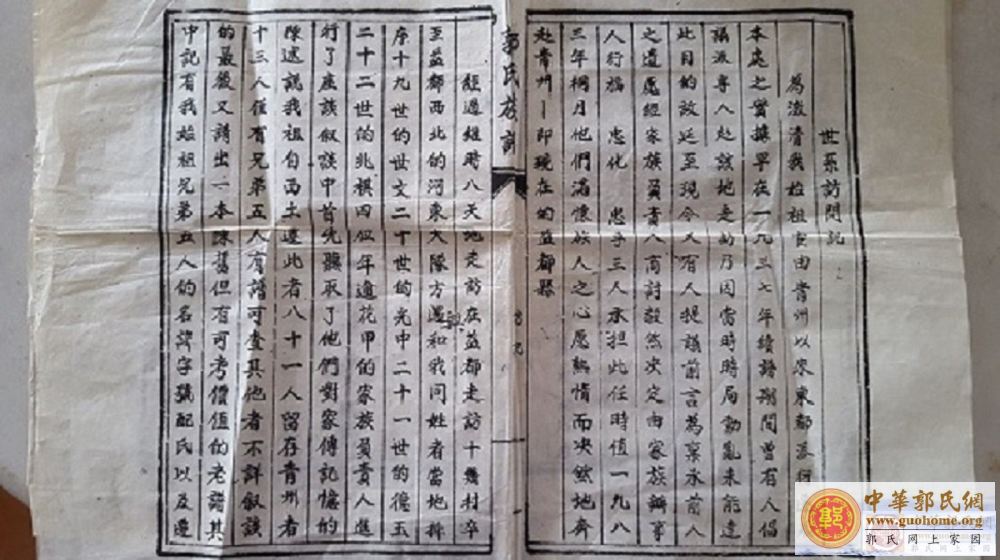 世系訪問記
為澄清我始祖宦由青州以來東都派行
本處之實據早在一九三七年續譜期間曾有人倡
議派專人赴該地走訪乃因當時時局動亂未能達
此目的故延至現今又有人提議前言為稟承前人
之遺愿經家族負責人商討毅然決定由家族辦事
人行福 忠化 忠孚三人承担此任時值一九八
三年桐月他們滿懷族人之心愿熱情而决然地奔
赴青州——即現在的益都縣
郭氏族譜
經過維時八天地走訪在益都走訪十幾村卒
至益都西北的河東大隊方遇和我同姓者當地排
序十九世的世文二十世的光中二十一世的德玉
二十二世的兆祺四位年逾花甲的家族負責人進
行了座談叙談中首先聽取了他們對家傳記憶的
陳述說我祖自西土遷此者八十一人留存青州者
十三人僅有兄弟五人有譜可查其他者不詳叙談
的最後又請出一本陳舊但有可考價值的老譜其
中記有我始祖兄弟五人的名諱字號配氏以及遷
中華郭氏網
www.guohome.org
郭氏網上家園